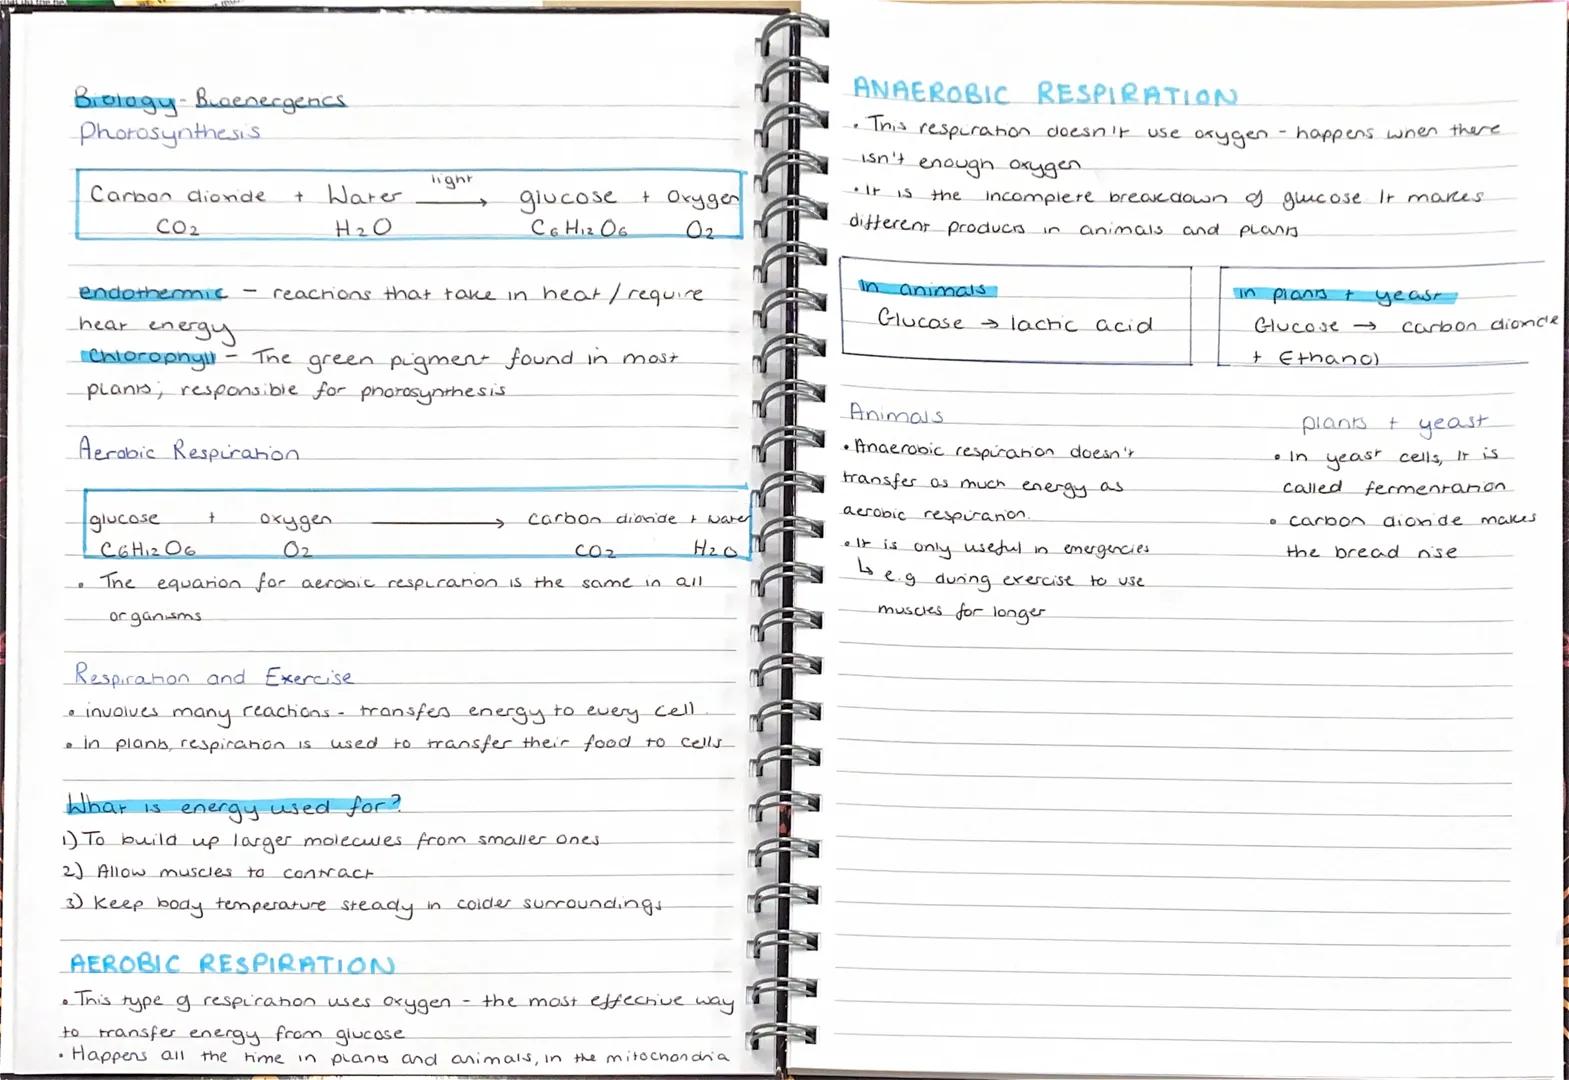 Biology - Bioenergetics
Photosynthesis
Carbon dioxide + Water light → glucose + Oxygen
CO2 H2O C6H12O6 O2
endothermic - reactions that take in heat / require
heat energy
Chlorophyll - The green pigment found in most
plants; responsible for photosynthesis
Aerobic Respiration
glucose + oxygen → carbon dioxide + water
C6H12O6 O2 CO2 H2O
• The equation for aerobic respiration is the same in all
organisms
Respiration and Exercise
• involves many reactions - transfers energy to every cell.
• In plants, respiration is used to transfer their food to cells
What is energy used for?
1) To build up larger molecules from smaller ones
2) Allow muscles to contract
3) Keep body temperature steady in colder surroundings
AEROBIC RESPIRATION
• This type of respiration uses oxygen - the most effective way
to transfer energy from glucose
• Happens all the time in plants and animals, in the mitochondria
ANAEROBIC RESPIRATION
• This respiration doesn't use oxygen - happens when there
isn't enough oxygen
• It is the incomplete breakdown of glucose It makes
different products in animals and plants
In animals
Glucose → lactic acid
in plants + yeast
Glucose → carbon dioxide
+ Ethanol
Animals
• Anaerobic respiration doesn't
transfer as much energy as
aerobic respiration.
• It is only useful in emergencies
↳ e.g during exercise to use
muscles for longer
plants + yeast
• In yeast cells, It is
called fermentation
• carbon dioxide makes
the bread rise